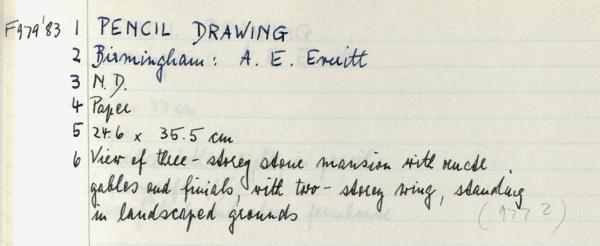 F979'83 1 PENCIL DRAWING
2 Birmingham: A. E. Everitt
3 N.D.
4 Paper
5 24.6 x 35.5 cm
6 View of three-storey stone mansion with
gables and finials, with two-storey wing, standing
in landscaped grounds (977?)